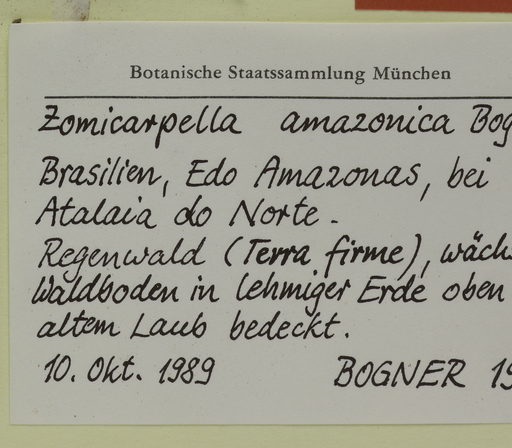 Botanische Staatssammlung München
Zomicarpella amazonica Bog
Brasilien, Edo Amazonas, bei
Atalaia do Norte.
Regenwald (Terra firme), wächs
Waldboden in lehmiger Erde oben
altem Laub bedeckt.
10. Okt. 1989 BOGNER 19